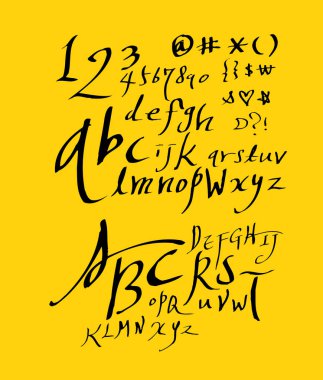 123 @#*()
4567890 {}$₩
defgh
D?!
abc ijk qrstuv
lmnop wxyz
DEFGHIJ
ABC RST
OPQ UVW
KLMN XYZ